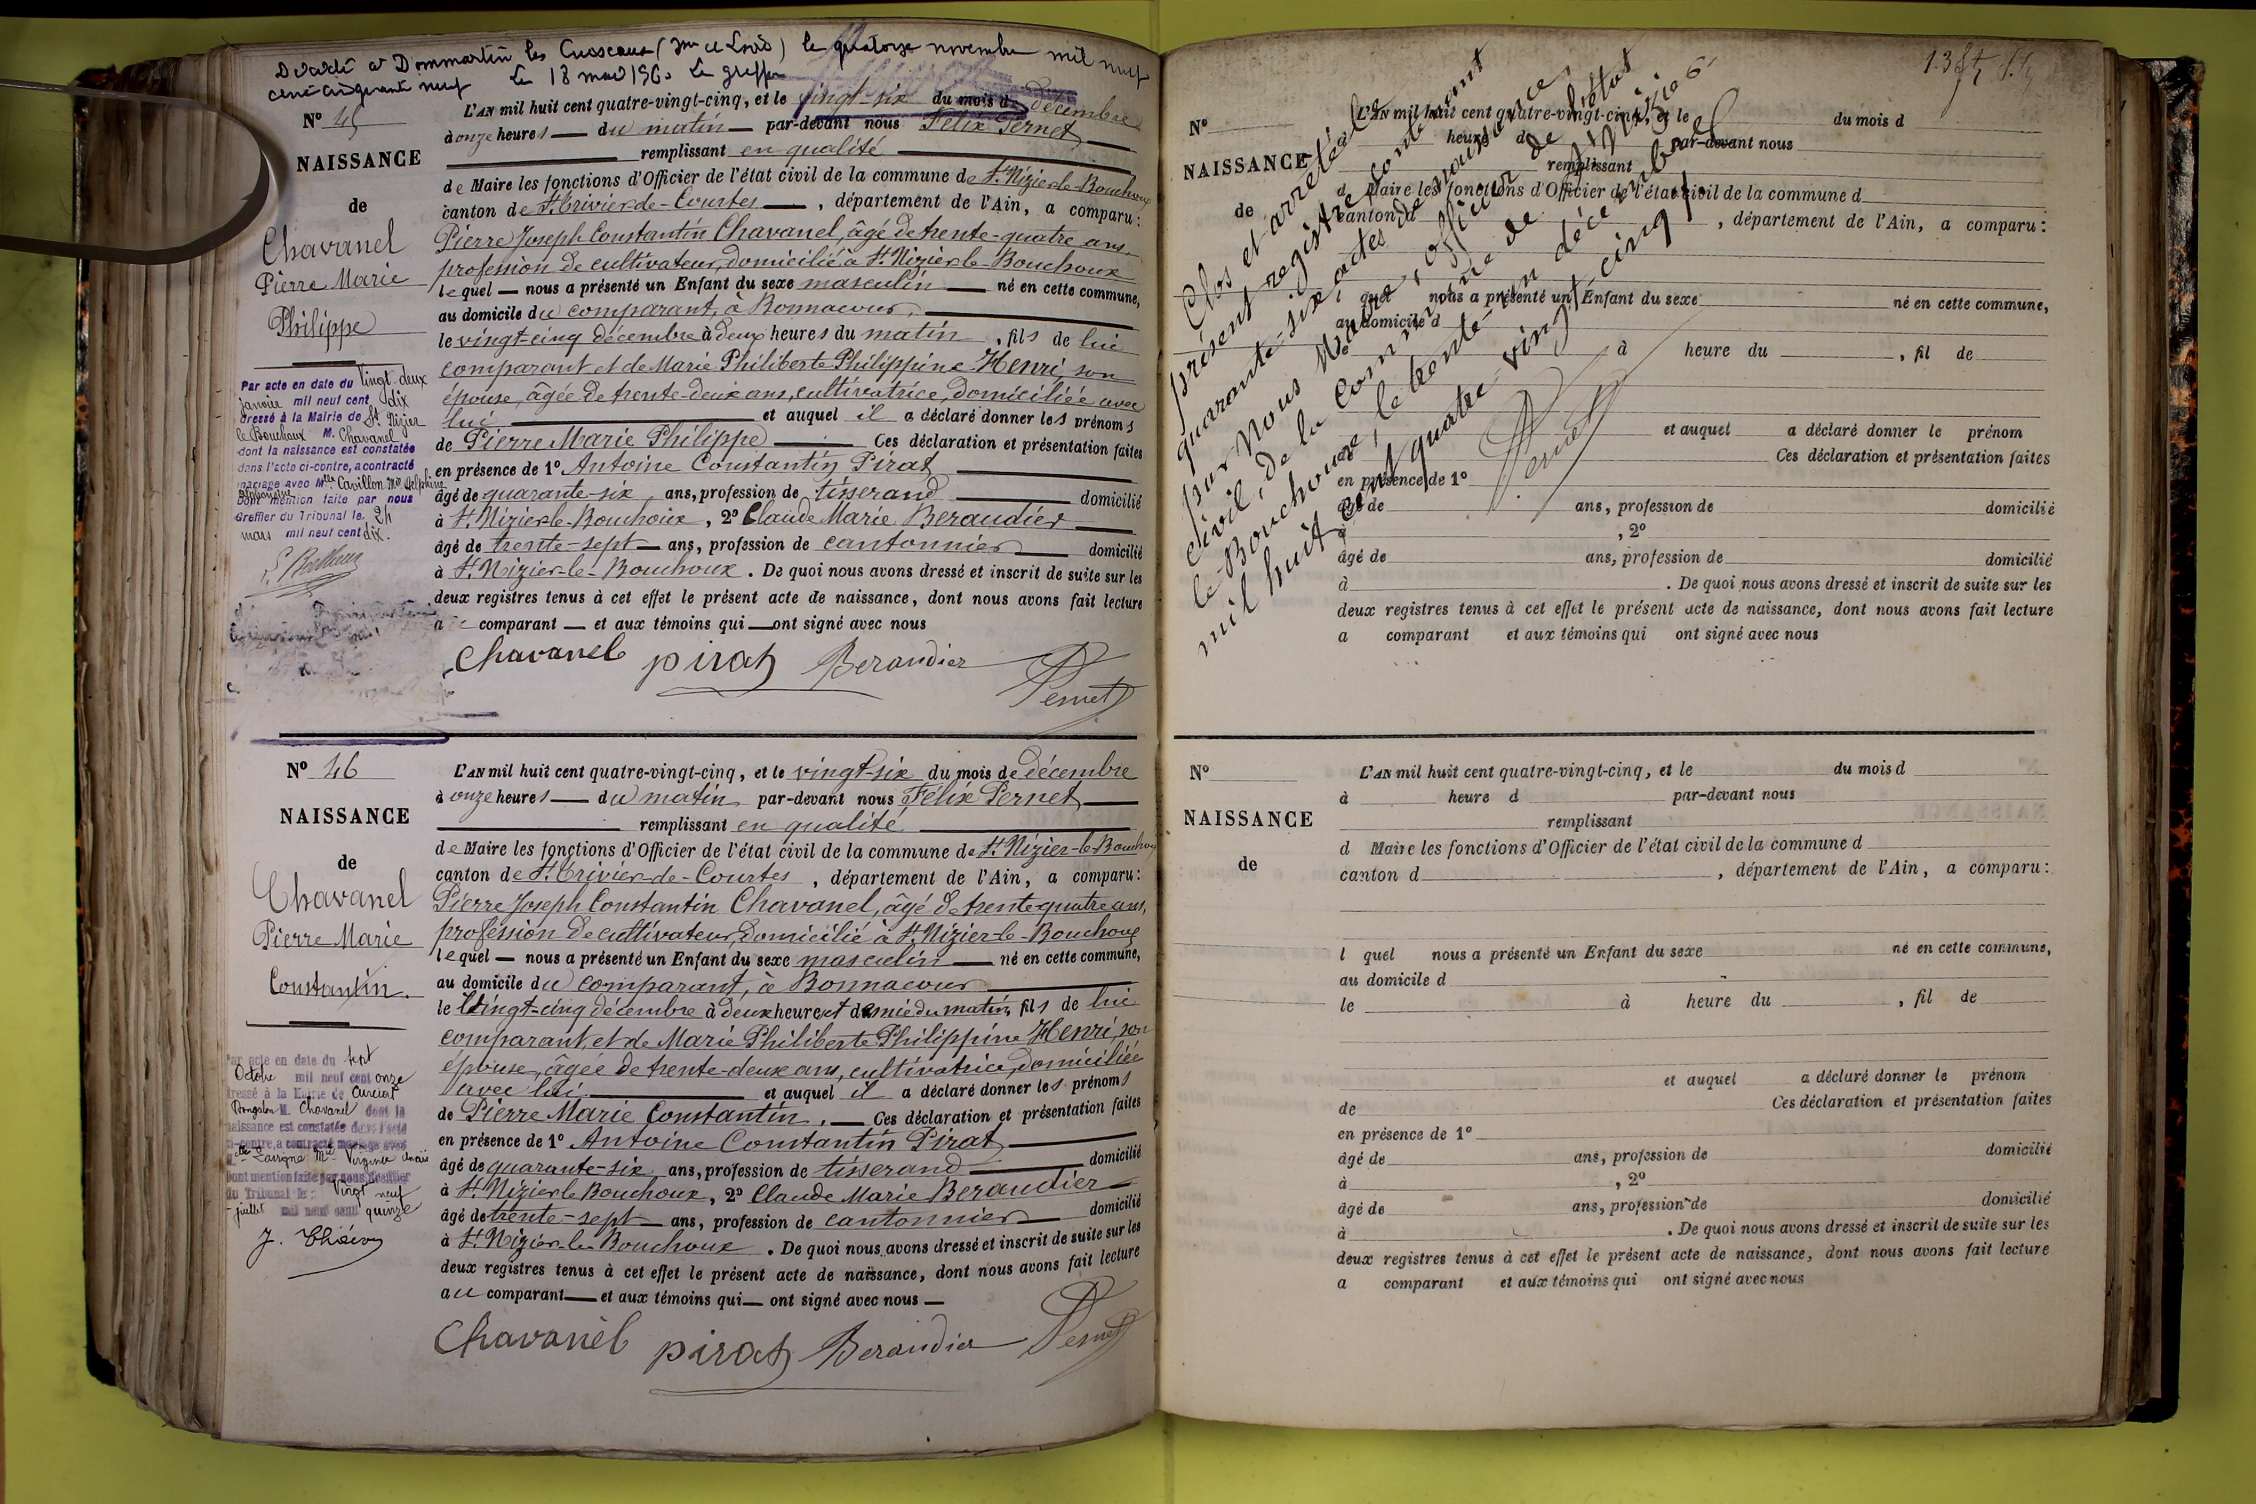 Décédé à Dommartin les Cuiseaux (Sne et Loire) le quatorze novembre mil neuf
cent cinquante neuf Le 18 mars 1960 Le greffier
N° 45
NAISSANCE
de
Chavanel
Pierre Marie
Philippe
Par acte en date du Vingt-deux
janvier mil neuf cent dix
dressé à la Mairie de St Nizier
le Bouchoux M. Chavanel
dont la naissance est constatée
dans l'acte ci-contre, a contracté
mariage avec Mlle Cavillon Mie Delphine
Alphonsine
Dont mention faite par nous
Greffier du Tribunal le 24
mars mil neuf cent dix.
L'AN mil huit cent quatre-vingt-cinq, et le vingt-six du mois de décembre
à onze heures du matin par-devant nous Félix Pernet
remplissant en qualité
de Maire les fonctions d'Officier de l'état civil de la commune de St Nizier-le-Bouchoux
canton de St Trivier-de-Courtes, département de l'Ain, a comparu:
Pierre Joseph Constantin Chavanel, âgé de trente-quatre ans,
profession de cultivateur, domicilié à St Nizier-le-Bouchoux
lequel nous a présenté un Enfant du sexe masculin né en cette commune,
au domicile du comparant, à Bonnacour,
le vingt-cinq décembre à deux heures du matin, fils de lui
comparant et de Marie Philiberte Philippine Henri, son
épouse, âgée de trente-deux ans, cultivatrice, domiciliée avec
lui et auquel il a déclaré donner les prénoms
de Pierre Marie Philippe Ces déclaration et présentation faites
en présence de 1° Antoine Constantin Pirat
âgé de quarante-six ans, profession de tisserand domicilié
à St Nizier-le-Bouchoux, 2° Claude Marie Beraudier
âgé de trente-sept ans, profession de cantonnier domicilié
à St Nizier-le-Bouchoux. De quoi nous avons dressé et inscrit de suite sur les
deux registres tenus à cet effet le présent acte de naissance, dont nous avons fait lecture
a comparant et aux témoins qui ont signé avec nous
Chavanel pirat Beraudier Pernet
N° 46
NAISSANCE
de
Chavanel
Pierre Marie
Constantin.
Par acte en date du sept
Octobre mil neuf cent onze
dressé à la Mairie de Curciat
Dongalon M. Chavanel dont la
naissance est constatée dans l'acte
ci-contre, a contracté mariage avec
Mlle Lavigne Mie Virginie Anaïs
Dont mention faite par nous Greffier
du Tribunal le: Vingt neuf
juillet mil neuf cent quinze
L'AN mil huit cent quatre-vingt-cinq, et le vingt-six du mois de décembre
à onze heures du matin par-devant nous Félix Pernet
remplissant en qualité
de Maire les fonctions d'Officier de l'état civil de la commune de St Nizier-le-Bouchoux
canton de St Trivier-de-Courtes, département de l'Ain, a comparu:
Pierre Joseph Constantin Chavanel, âgé de trente-quatre ans,
profession de cultivateur, domicilié à St Nizier-le-Bouchoux
lequel nous a présenté un Enfant du sexe masculin né en cette commune,
au domicile du comparant, à Bonnacour
le vingt-cinq décembre à deux heures et demie du matin, fils de lui
comparant, et de Marie Philiberte Philippine Henri, son
épouse, âgée de trente-deux ans, cultivatrice, domiciliée
avec lui et auquel il a déclaré donner les prénoms
de Pierre Marie Constantin. Ces déclaration et présentation faites
en présence de 1° Antoine Constantin Pirat
âgé de quarante-six ans, profession de tisserand domicilié
à St Nizier-le-Bouchoux, 2° Claude Marie Beraudier
âgé de trente-sept ans, profession de cantonnier domicilié
à St Nizier-le-Bouchoux. De quoi nous avons dressé et inscrit de suite sur les
deux registres tenus à cet effet le présent acte de naissance, dont nous avons fait lecture
au comparant et aux témoins qui ont signé avec nous
Chavanel pirat Beraudier Pernet
N°
NAISSANCE
de
L'AN mil huit cent quatre-vingt-cinq, et le du mois d
heure d par-devant nous
remplissant
d Maire les fonctions d'Officier de l'état civil de la commune d
canton d , département de l'Ain, a comparu:
l quel nous a présenté un Enfant du sexe né en cette commune,
au domicile d
le à heure du , fil de
et auquel a déclaré donner le prénom
de Ces déclaration et présentation faites
en présence de 1°
âgé de ans, profession de domicilié
à , 2°
âgé de ans, profession de domicilié
à . De quoi nous avons dressé et inscrit de suite sur les
deux registres tenus à cet effet le présent acte de naissance, dont nous avons fait lecture
a comparant et aux témoins qui ont signé avec nous
Clos et arrêté le
présent registre contenant
quarante-six actes de naissance,
par Nous Maire, officier de l'état
civil, de la commune de St Nizier
le-Bouchoux, le trente-un décembre
mil huit cent quatre vingt cinq
Pernet
N°
NAISSANCE
de
L'AN mil huit cent quatre-vingt-cinq, et le du mois d
à heure d par-devant nous
remplissant
d Maire les fonctions d'Officier de l'état civil de la commune d
canton d , département de l'Ain, a comparu:
l quel nous a présenté un Enfant du sexe né en cette commune,
au domicile d
le à heure du , fil de
et auquel a déclaré donner le prénom
de Ces déclaration et présentation faites
en présence de 1°
âgé de ans, profession de domicilié
à , 2°
âgé de ans, profession de domicilié
à . De quoi nous avons dressé et inscrit de suite sur les
deux registres tenus à cet effet le présent acte de naissance, dont nous avons fait lecture
a comparant et aux témoins qui ont signé avec nous